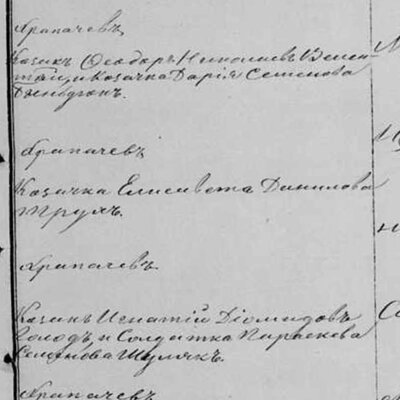 Храпачевъ
Казакъ Ѳеодоръ Николаевъ Велен-
и Козачка Дарія Семенова
Храпачевъ
Козачка Елисавета Данилова
Труль.
Храпачевъ
Козакъ Игнатій Діомидовъ
Голодъ, и Солдатка Параскева
Семенова Шулякъ.
Храпачевъ